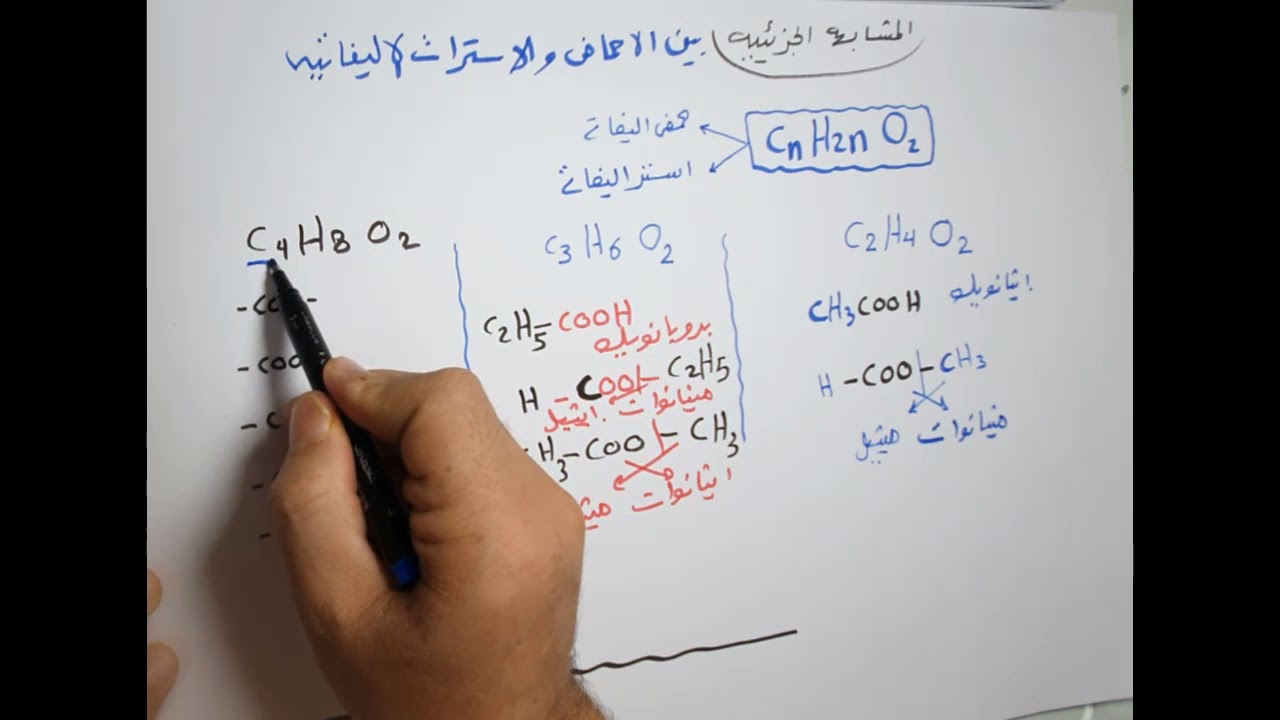 المشابهه الجزئيه بين الاحماض والاسترات الاليفاتيه
CnH2nO2
حمض اليفاتى
استر اليفاتى
C2H4O2
CH3COOH ايثانويك
H-COO-CH3
ميثانوات ميثيل
C3H6O2
C2H5-COOH
بروبانويك
H-COO-C2H5
ميثانوات ايثيل
H3-COO-CH3
ايثانوات
C4H8O2